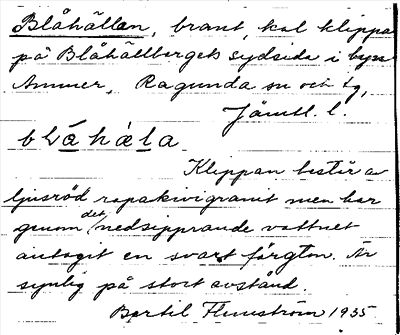 Blåhällan, brant, kal klippa
på Blåhällbergets sydsida i byn
Ammer, Ragunda sn och tg,
Jämtl. l.
blåhȧla
Klippan består av
ljusröd rapakivigranit men har
genom det nedsipprande vattnet
antagit en svart färgton. Är
synlig på stort avstånd.
Bertil Flemström 1935